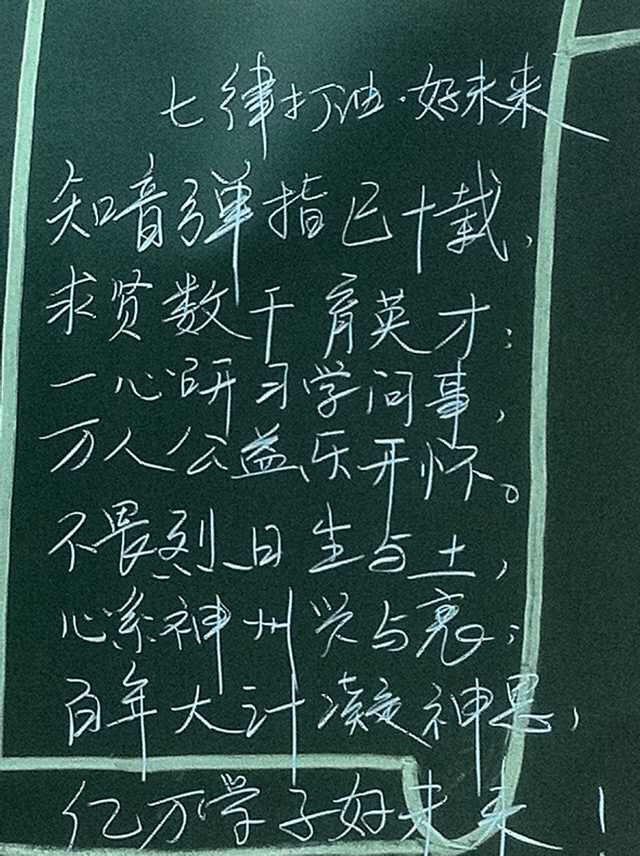 七律打油·好未来
知音弹指已十载,
求贤数千育英才;
一心研习学问事,
万人公益乐开怀。
不畏烈日生与土,
心系神州兴与衰;
百年大计凝神思,
亿万学子好未来!